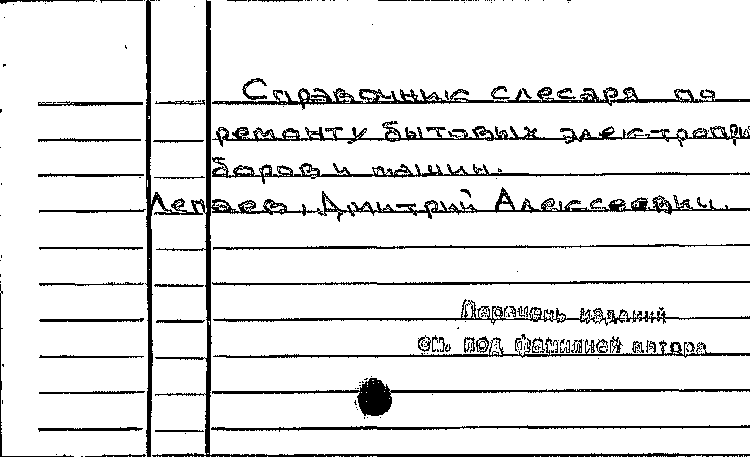 Справочник слесаря по
ремонту бытовых электропри
боров и машин.
Лепаев, Дмитрий Алексеевич.
Перечень изданий
см. под фамилией автора